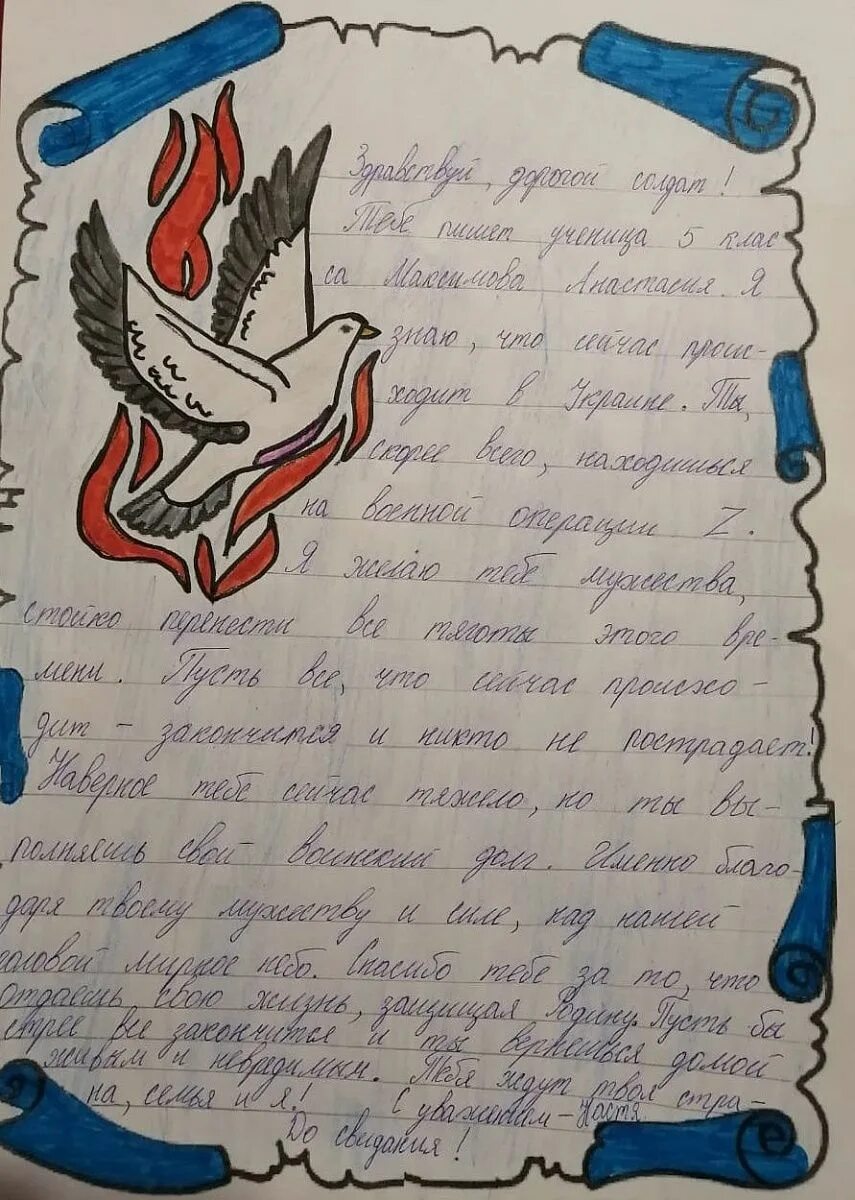 Здравствуй, дорогой солдат!
Тебе пишет ученица 5 клас-
са Максимова Анастасия. Я
знаю, что сейчас проис-
ходит в Украине. Ты,
скорее всего, находишься
на военной операции Z.
Я желаю тебе мужества,
стойко перенести все тяготы этого вре-
мени. Пусть все, что сейчас происхо-
дит - закончится и никто не пострадает!
Наверное тебе сейчас тяжело, но ты вы-
полняешь свой воинский долг. Именно благо-
даря твоему мужеству и силе, над нашей
головой мирное небо. Спасибо тебе за то, что
отдаешь свою жизнь, защищая Родину. Пусть бы
стрее все закончится и ты вернешься домой
живым и невредимым. Тебя ждут твоя стра-
на, семья и я! С уважением - Настя
До свидания!